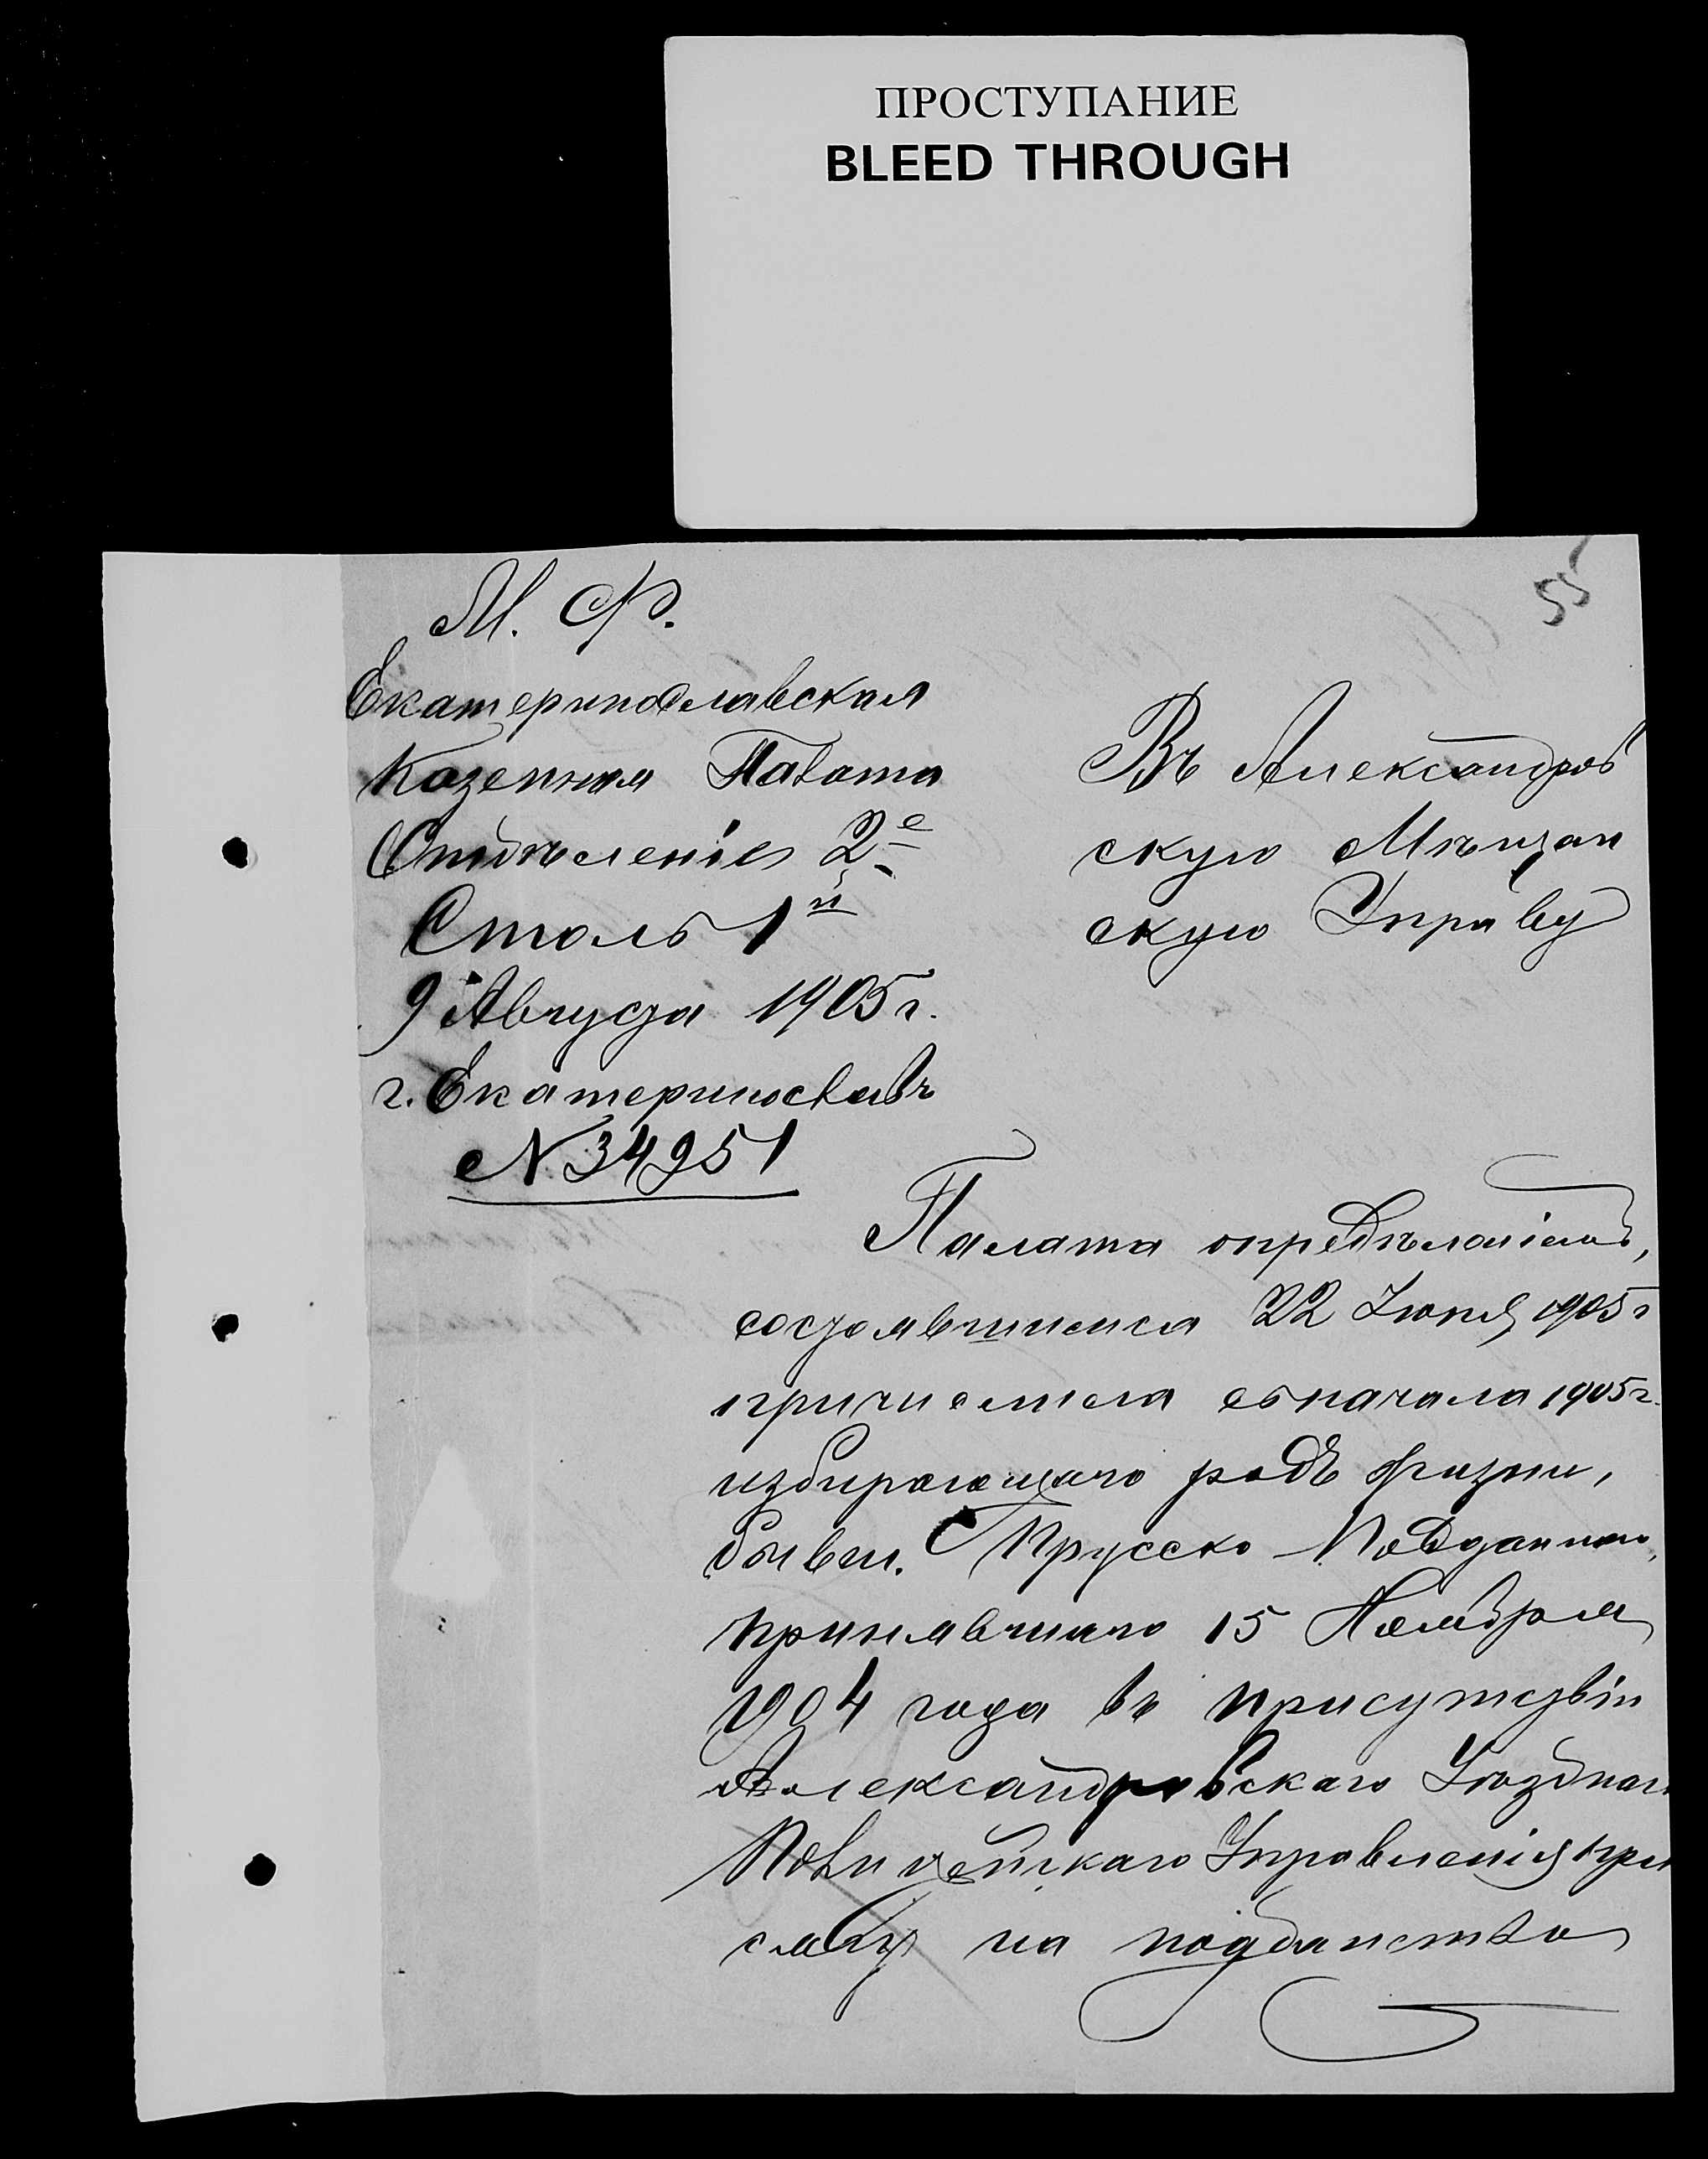 ПРОСТУПАНИЕ
BLEED THROUGH
55
М. Ф.
Екатеринославская
Казенная Палата
Отдѣленіе 2е
Столъ 1й
9 Августа 1905 г.
г. Екатеринославъ
№ 34951
Въ Александров
скую Мѣщан
скую Управу
Палата опредѣленіемъ,
состоявшимся 22 Іюня 1905 г
причислила съ начала 1905 г.
избирающаго родъ жизни,
бывш. Прусско-Подданнаго,
принявшаго 15 Ноября
1904 года въ присутствіи
Александровскаго Уѣзднаго
Полицейскаго Управленія при
сягу на подданство